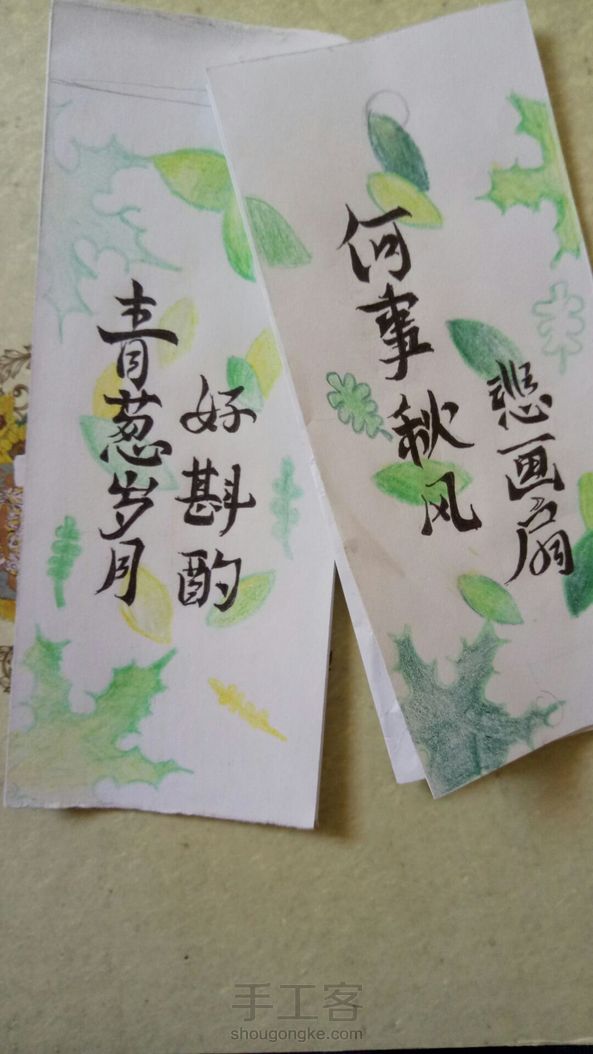 青葱岁月
好斟酌
何事秋风
悲画扇
手工客
shougongke.com